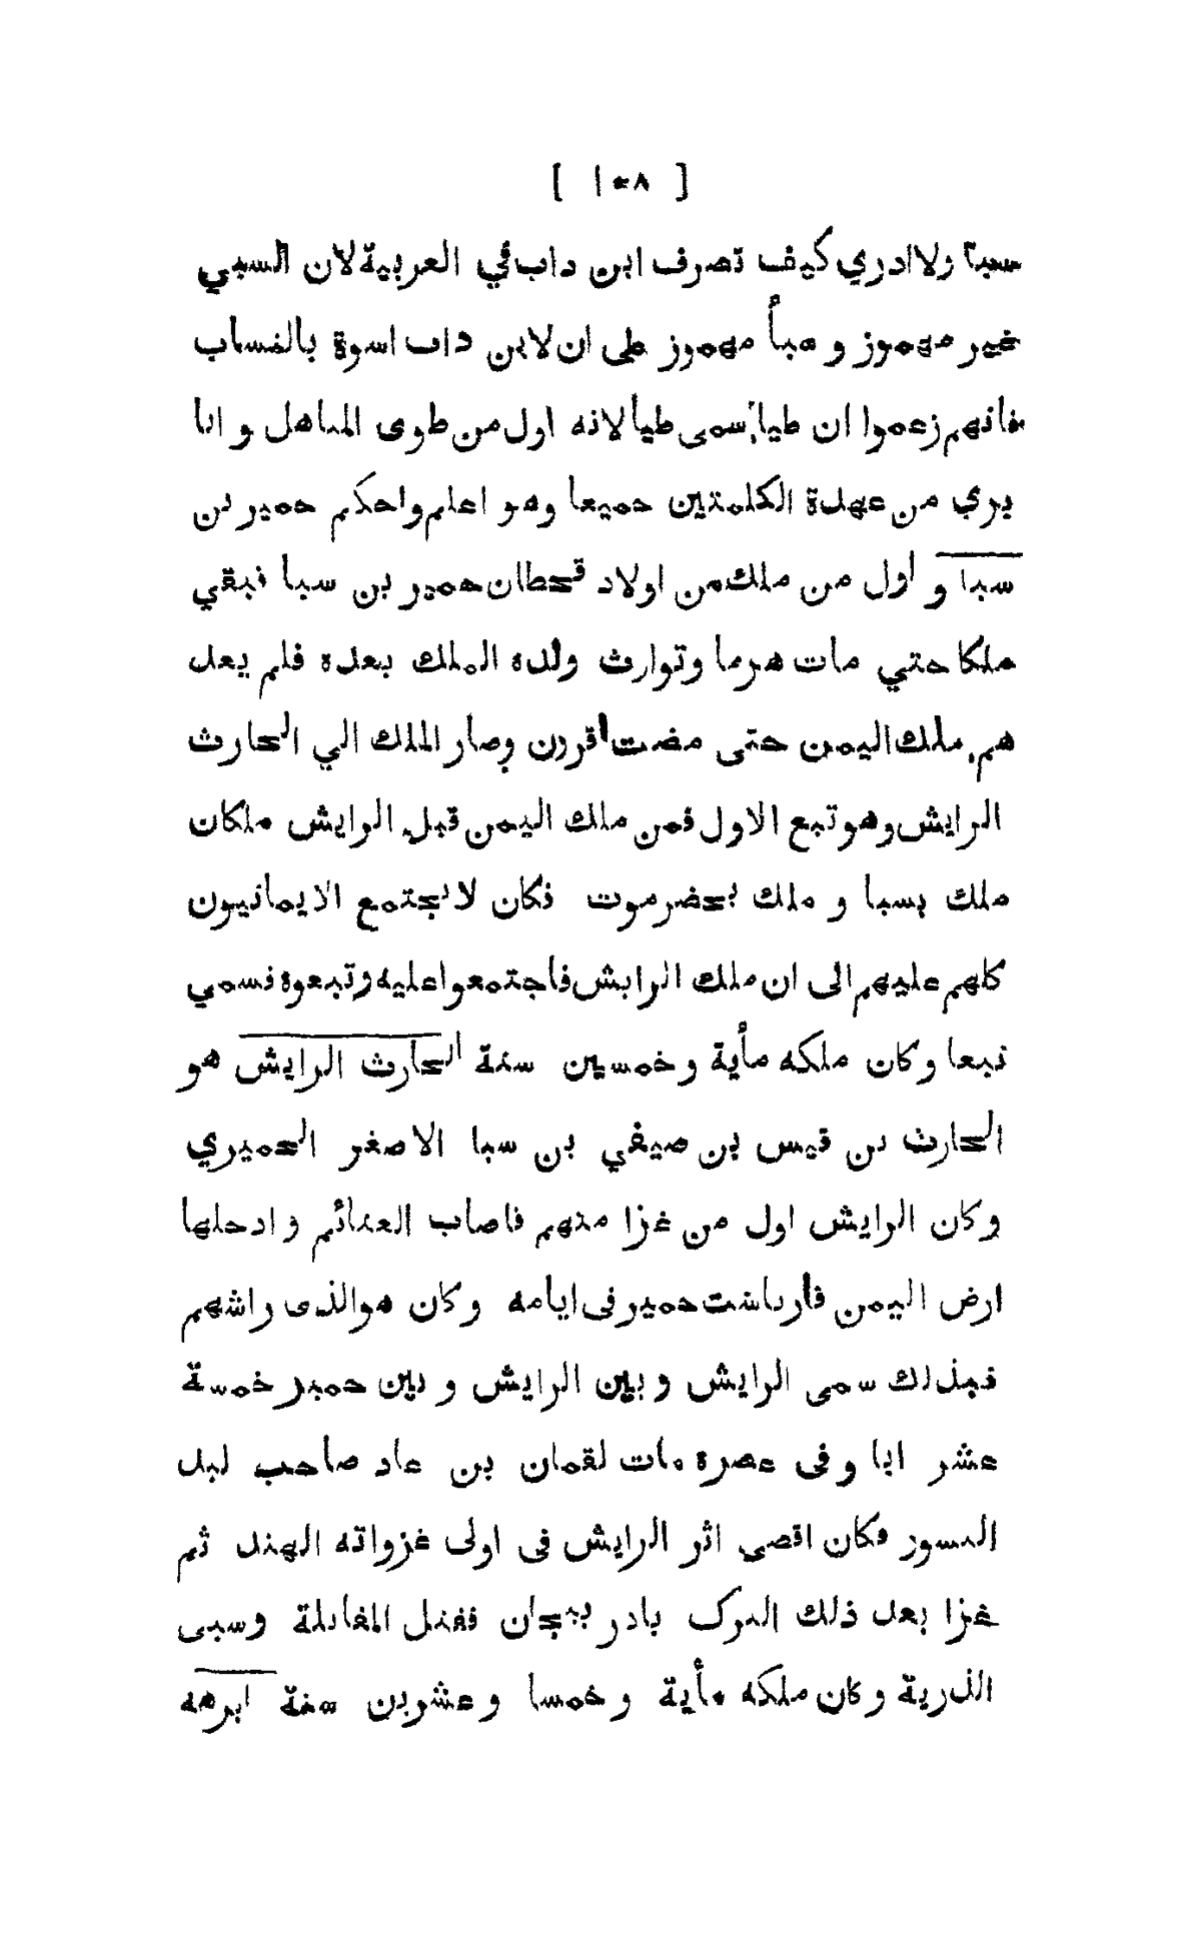 [ ١٠٨ ]
سبا ولا ادري كيف تصرف ابن داب في العربية لان السبي
غير مهموز و سبأ مهموز على ان لابن داب اسوة بالنساب
فانهم زعموا ان طيا سمى طيا لانه اول من طوى المناهل و انا
بري من عهدة الكلمتين جميعا وهو اعلم واحكم حمير بن
سبا و اول من ملك من اولاد قحطان حمير بن سبا فبقي
ملكا حتي مات هرما وتوارث ولده الملك بعده فلم يعد
هم ملك اليمن حتى مضت قرون وصار الملك الي الحارث
الرايش وهو تبع الاول فمن ملك اليمن قبل الرايش ملكان
ملك بسبا و ملك بحضرموت فكان لا يجتمع الايمانيون
كلهم عليهم الى ان ملك الرايش فاجتمعوا عليه وتبعوه فسمي
تبعا وكان ملكه مأية وخمسين سنة الحارث الرايش هو
الحارث بن قيس بن صيفي بن سبا الاصغر الحميري
وكان الرايش اول من غزا منهم فاصاب الغنائم و ادخلها
ارض اليمن فارتاشت حمير فى ايامه وكان هو الذى راشهم
فبذلك سمى الرايش و بين الرايش و بين حمير خمسة
عشر ابا و فى عصره مات لقمان بن عاد صاحب لبد
النسور فكان اقصى اثر الرايش فى اولى غزواته الهند ثم
غزا بعد ذلك الترك بادربيجان فقتل المقاتلة وسبى
الذرية وكان ملكه مأية و خمسا و عشرين سنة ابرهه